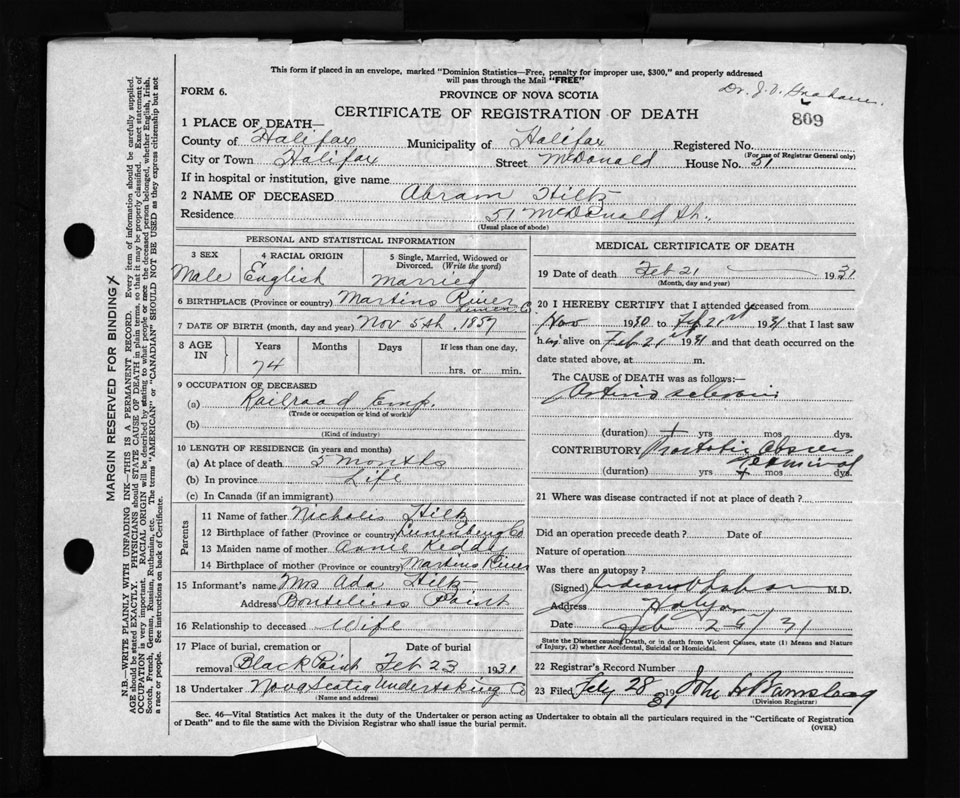 This form if placed in an envelope, marked "Dominion Statistics—Free, penalty for improper use, $300," and properly addressed
will pass through the Mail "FREE"
FORM 6.
PROVINCE OF NOVA SCOTIA
Dr. J. V. Graham.
CERTIFICATE OF REGISTRATION OF DEATH
809
1 PLACE OF DEATH—
County of Halifax Municipality of Halifax Registered No.
(For use of Registrar General only)
City or Town Halifax Street McDonald House No. 51
If in hospital or institution, give name
2 NAME OF DECEASED Abram Hiltz
Residence 51 McDonald St.
(Usual place of abode)
PERSONAL AND STATISTICAL INFORMATION
3 SEX 4 RACIAL ORIGIN 5 Single, Married, Widowed or
Divorced. (Write the word)
Male English Married
6 BIRTHPLACE (Province or country) Martins River
Lunen. Co
7 DATE OF BIRTH (month, day and year) Nov 5th, 1857
8 AGE IN Years Months Days If less than one day,
74 hrs. or min.
9 OCCUPATION OF DECEASED
(a) Railroad Emp.
(Trade or occupation or kind of work)
(b)
(Kind of industry)
10 LENGTH OF RESIDENCE (in years and months)
(a) At place of death 5 months
(b) In province Life
(c) In Canada (if an immigrant)
Parents
11 Name of father Nicholis Hiltz
12 Birthplace of father (Province or country) Lunenburg Co
13 Maiden name of mother Annie Keddy
14 Birthplace of mother (Province or country) Martins River
15 Informant's name Mrs Ada Hiltz
Address Boutiliers Point
16 Relationship to deceased Wife
17 Place of burial, cremation or Date of burial
removal Black Point Feb 23 1931
18 Undertaker Nova Scotia Undertaking Co
(Name and address)
MEDICAL CERTIFICATE OF DEATH
19 Date of death Feb 21 1931
(Month, day and year)
20 I HEREBY CERTIFY that I attended deceased from
Nov 1930 to Feb 21st 1931 that I last saw
him alive on Feb 21st 1931 and that death occurred on the
date stated above, at m.
The CAUSE of DEATH was as follows:—
Arterio sclerosis
(duration) + yrs mos dys.
CONTRIBUTORY Prostatic
(duration) yrs + mos dys.
21 Where was disease contracted if not at place of death?
Did an operation precede death? Date of
Nature of operation
Was there an autopsy?
(Signed) M.D.
Address Halifax
Date Feb 25/31
State the Disease causing Death, or in death from Violent Causes, state (1) Means and Nature
of Injury, (2) whether Accidental, Suicidal or Homicidal.
22 Registrar's Record Number
23 Filed Feby 28 1931 John H Barnstead
(Division Registrar)
Sec. 46—Vital Statistics Act makes it the duty of the Undertaker or person acting as Undertaker to obtain all the particulars required in the "Certificate of Registration
of Death" and to file the same with the Division Registrar who shall issue the burial permit.
(OVER)
MARGIN RESERVED FOR BINDING
N.B.—WRITE PLAINLY WITH UNFADING INK—THIS IS A PERMANENT RECORD. Every item of information should be carefully supplied.
AGE should be stated EXACTLY. PHYSICIANS should STATE CAUSE OF DEATH in plain terms, so that it may be properly classified. Exact statement of
OCCUPATION is very important. RACIAL ORIGIN will be described by stating to what people or race the deceased person belonged, whether English, Irish,
Scotch, French, German, Russian, Ruthenian, etc. The terms "AMERICAN" or "CANADIAN" SHOULD NOT BE USED as they express citizenship but not
a race or people. See instructions on back of Certificate.